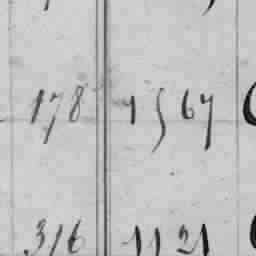 178 1567
316 1121